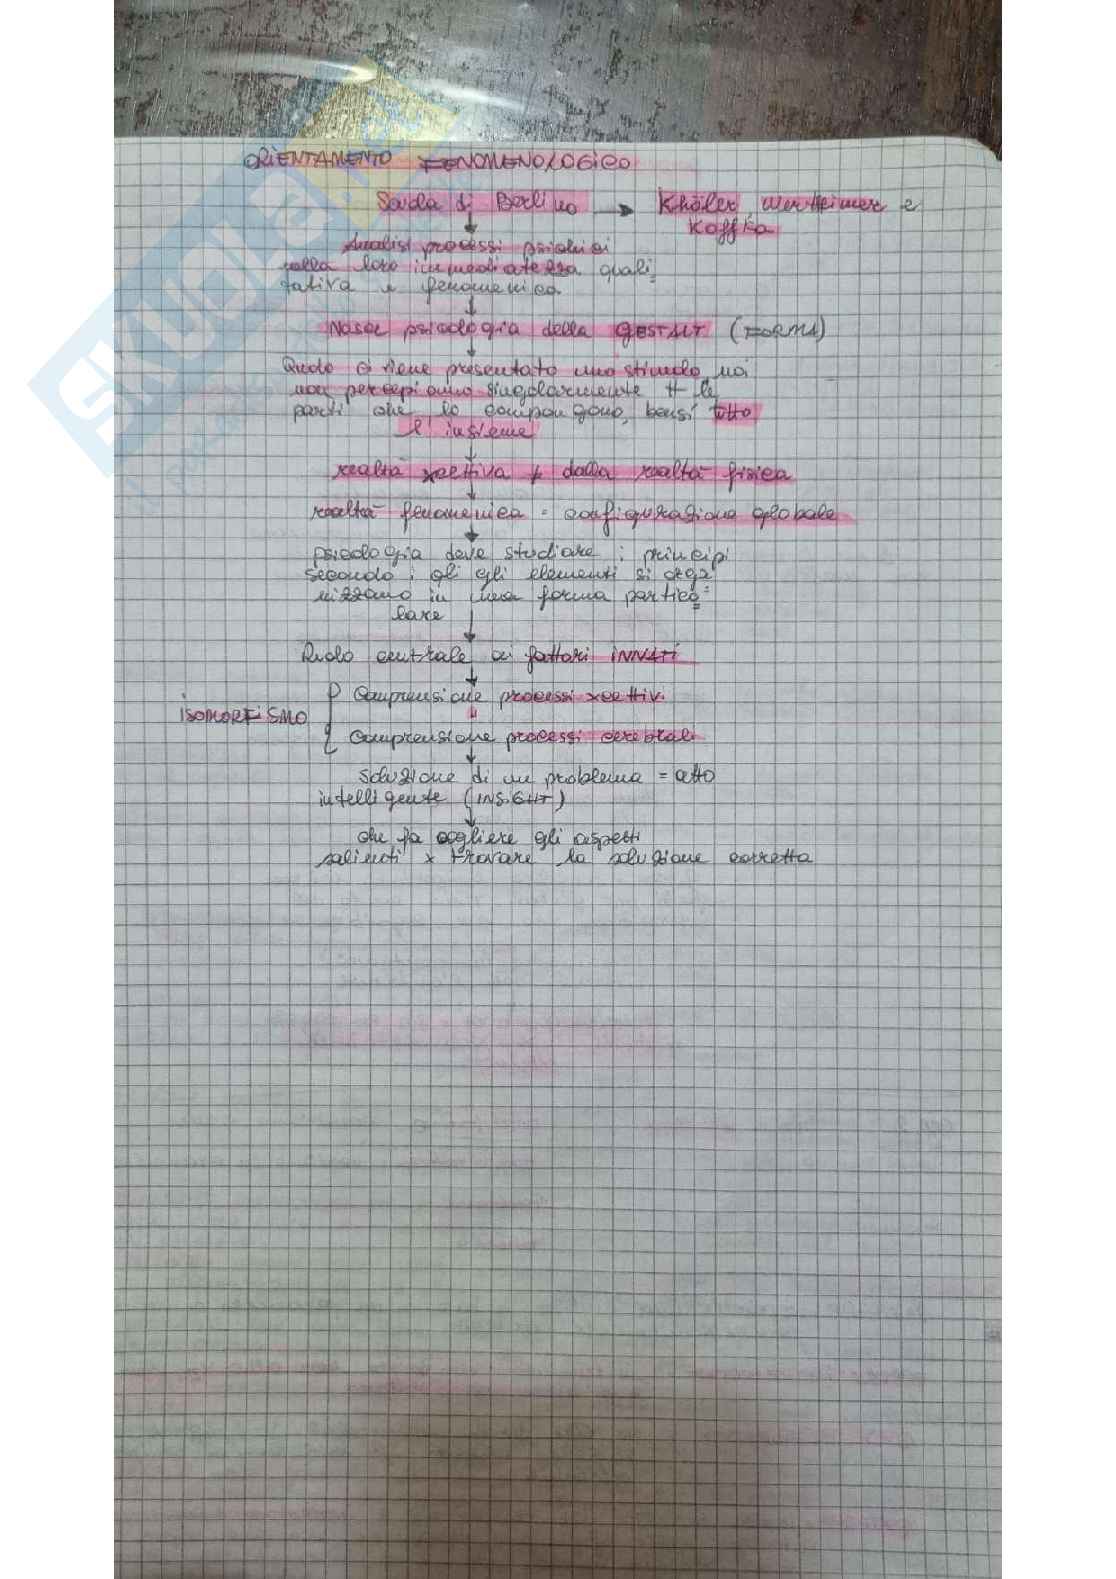 ORIENTAMENTO FENOMENOLOGICO
Scuola di Berlino → Khöler, Wertheimer e
Koffka
Analisi processi psichici
nella loro immediatezza quali
tativa e fenomenica
Nasce psicologia della GESTALT (FORMA)
Quando ci viene presentato uno stimolo, noi
non percepiamo singolarmente le
parti che lo compongono, bensì tutto
l'insieme
realtà xcettiva ≠ dalla realtà fisica
realtà fenomenica = configurazione globale
psicologia deve studiare i principi
secondo i qli gli elementi si orga
nizzano in una forma partico
lare
Ruolo centrale ai fattori INNATI
Comprensione processi xcettivi
ISOMORFISMO
Comprensione processi cerebrali
Soluzione di un problema = atto
intelligente (INSIGHT)
che fa cogliere gli aspetti
salienti x trovare la soluzione corretta
SKUOLA.net